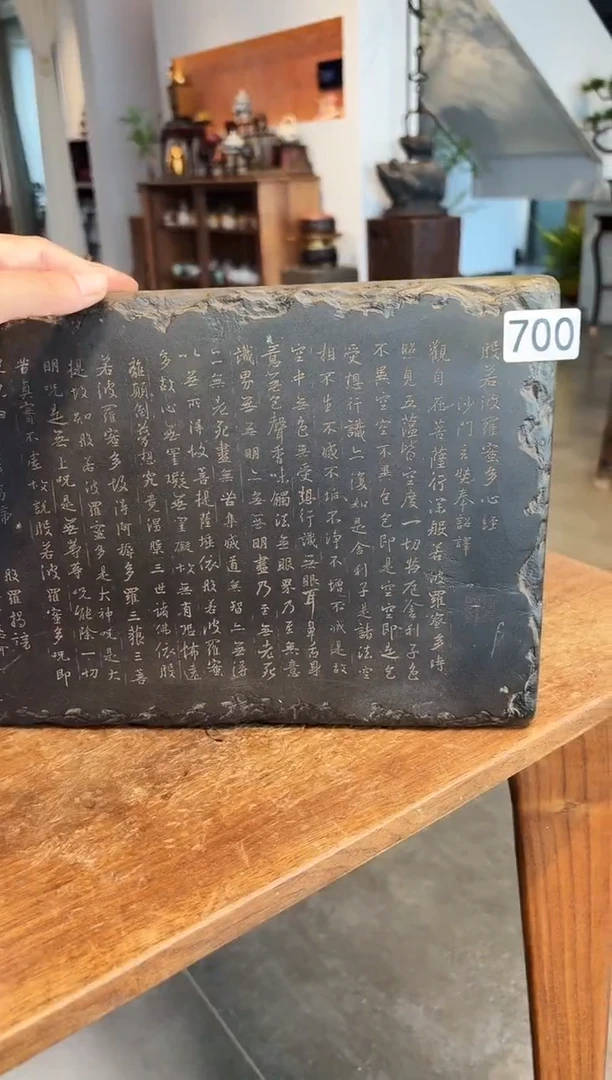 700
般若波羅蜜多心經
沙門玄奘奉詔譯
觀自在菩薩行深般若波羅蜜多時
照見五蘊皆空度一切苦厄舍利子色
不異空空不異色色即是空空即是色
受想行識亦復如是舍利子是諸法空
相不生不滅不垢不淨不增不減是故
空中無色無受想行識無眼耳鼻舌身
意無色聲香味觸法無眼界乃至無意
識界無無明亦無無明盡乃至無老死
亦無老死盡無苦集滅道無智亦無得
以無所得故菩提薩埵依般若波羅蜜
多故心無罣礙無罣礙故無有恐怖遠
離顛倒夢想究竟涅槃三世諸佛依般
若波羅蜜多故得阿耨多羅三藐三菩
提故知般若波羅蜜多是大神咒是大
明咒是無上咒是無等等咒能除一切
苦真實不虛故說般若波羅蜜多咒即
般羅揭諦